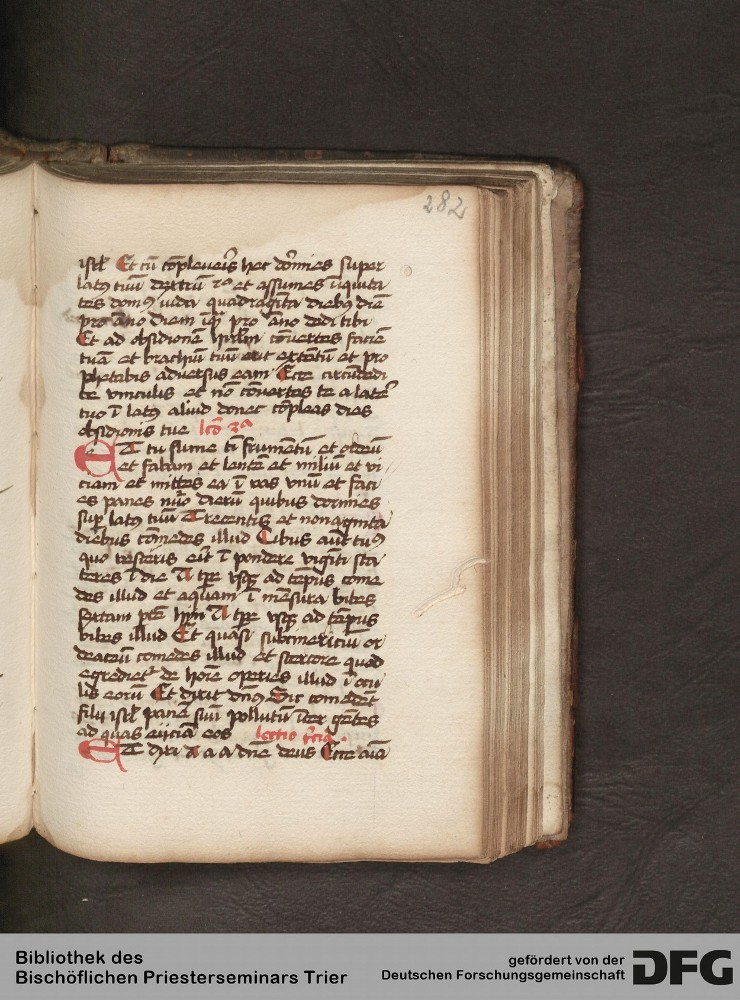 282
isrl̄ Et cū cōplever̄s hec dōrmies super
latꝰ tuū dextrū 2º et assumes īiquita
tes domꝰ iuda quadragīta diebꝰ diē
pro āno diem īqͣ pro āno dedi tibi
Et ad obsidionē hirl̄m cōvertes faciē
tuā et brachiū tuū erit extētū et pro
phetabis adversus eam Ecce circūdedi
te vinculis et nō cōvertes te a later̄
tuo ī latꝰ aliud donec cōpleas dies
obsidionis tue lcō 2ª
ET tu sume tī frumētū et ordeū
et fabam et lentē et miliū et vi
ciam et mittes ea ī vas vnū et faci
es panes nūo dierū quibus dormies
sup̄ latꝰ tuū Trecentis et nonagīta
diebus cōmedes illud Cibus aūt tuꝰ
quo vesceris erit ī pondere vigīti sta
teres ī die A tp̄e vsqꝫ ad tēpus come
des illud et aquam ī mēsura bibes
sextam ptē hyn A tp̄e vsqꝫ ad tēpus
bibes illud Et quasi subcinericiū or
deaceū comedes illud et stercore quod
egrediet᷑ de hoīe operies illud ī ocu
lis eorū Et dixit dn̄s Sic comedēt
filii isrl̄ panē suū pollutū īter gētes
ad quas eiiciā eos lectio t̄cia
ET dixi A a a dn̄e deus Ecce aīa
Bibliothek des
Bischöflichen Priesterseminars Trier
gefördert von der
Deutschen Forschungsgemeinschaft
DFG